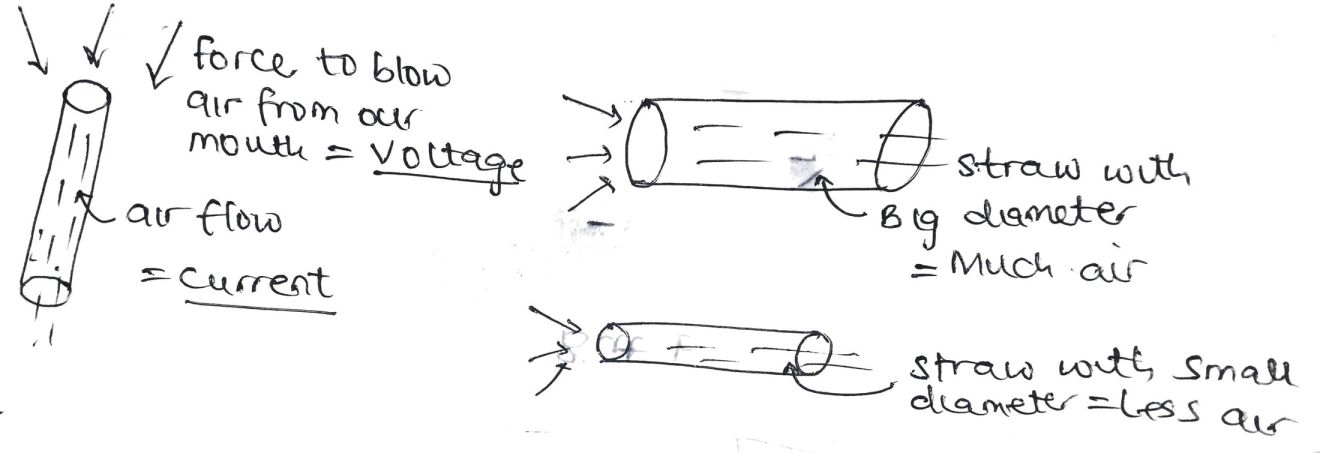 force to blow
air from our
mouth = Voltage
air flow
= Current
straw with
Big diameter
= Much air
straw with small
diameter = Less air